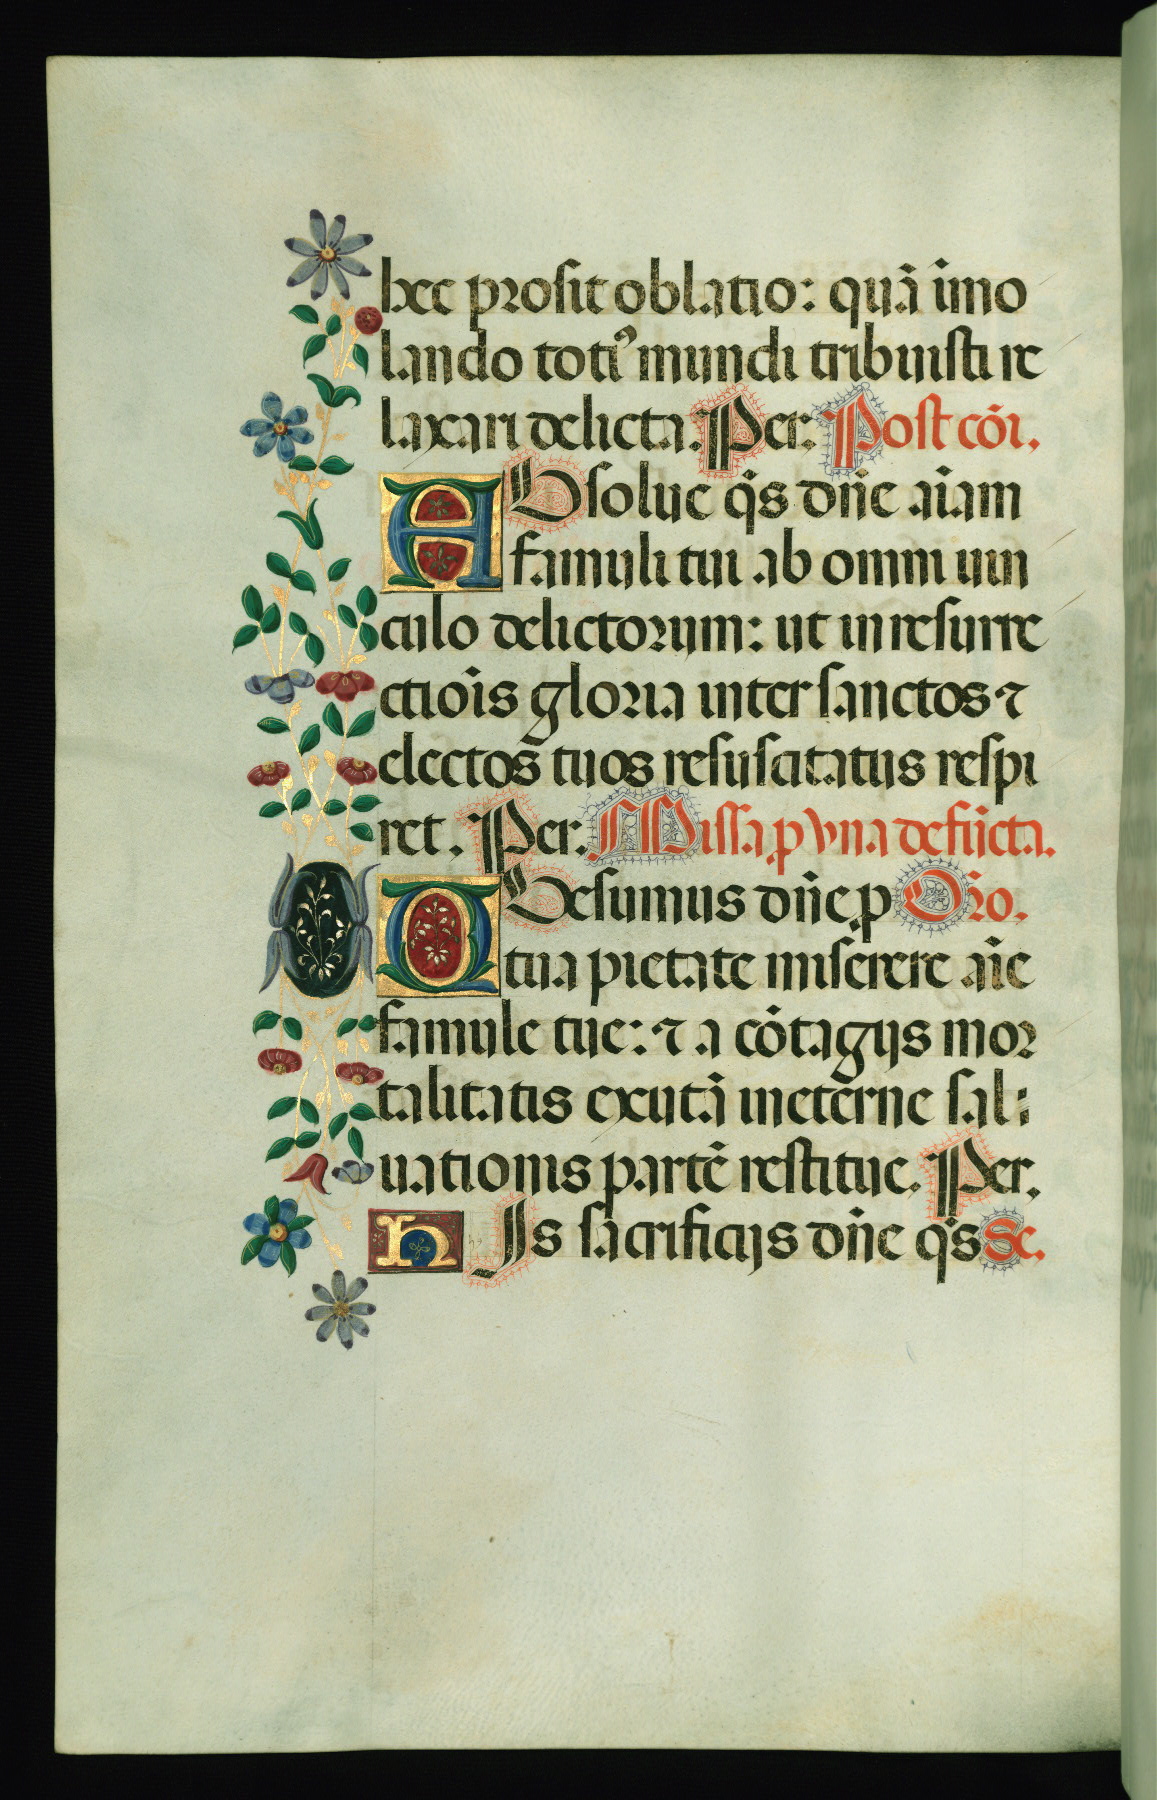 hec prosit oblatio: quā īmo
lando totiꝰ mundi tribuisti re
laxari delicta. Per. Post cōi.
ABsolue q̄s dn̄e aīam
famuli tui ab omni uin
culo delictorum: ut in resurre
ctiōis gloria inter sanctos ⁊
electos tuos resuscitatus respi
ret. Per. Missa ꝓ vna defūcta.
QUesumus dn̄e ꝓ Orō.
tua pietate miserere aīe
famule tue: ⁊ a cōtagijs mor
talitatis exutā in eterne sal:
uationis partē restitue. Per.
hIs sacrificijs dn̄e q̄s Se.